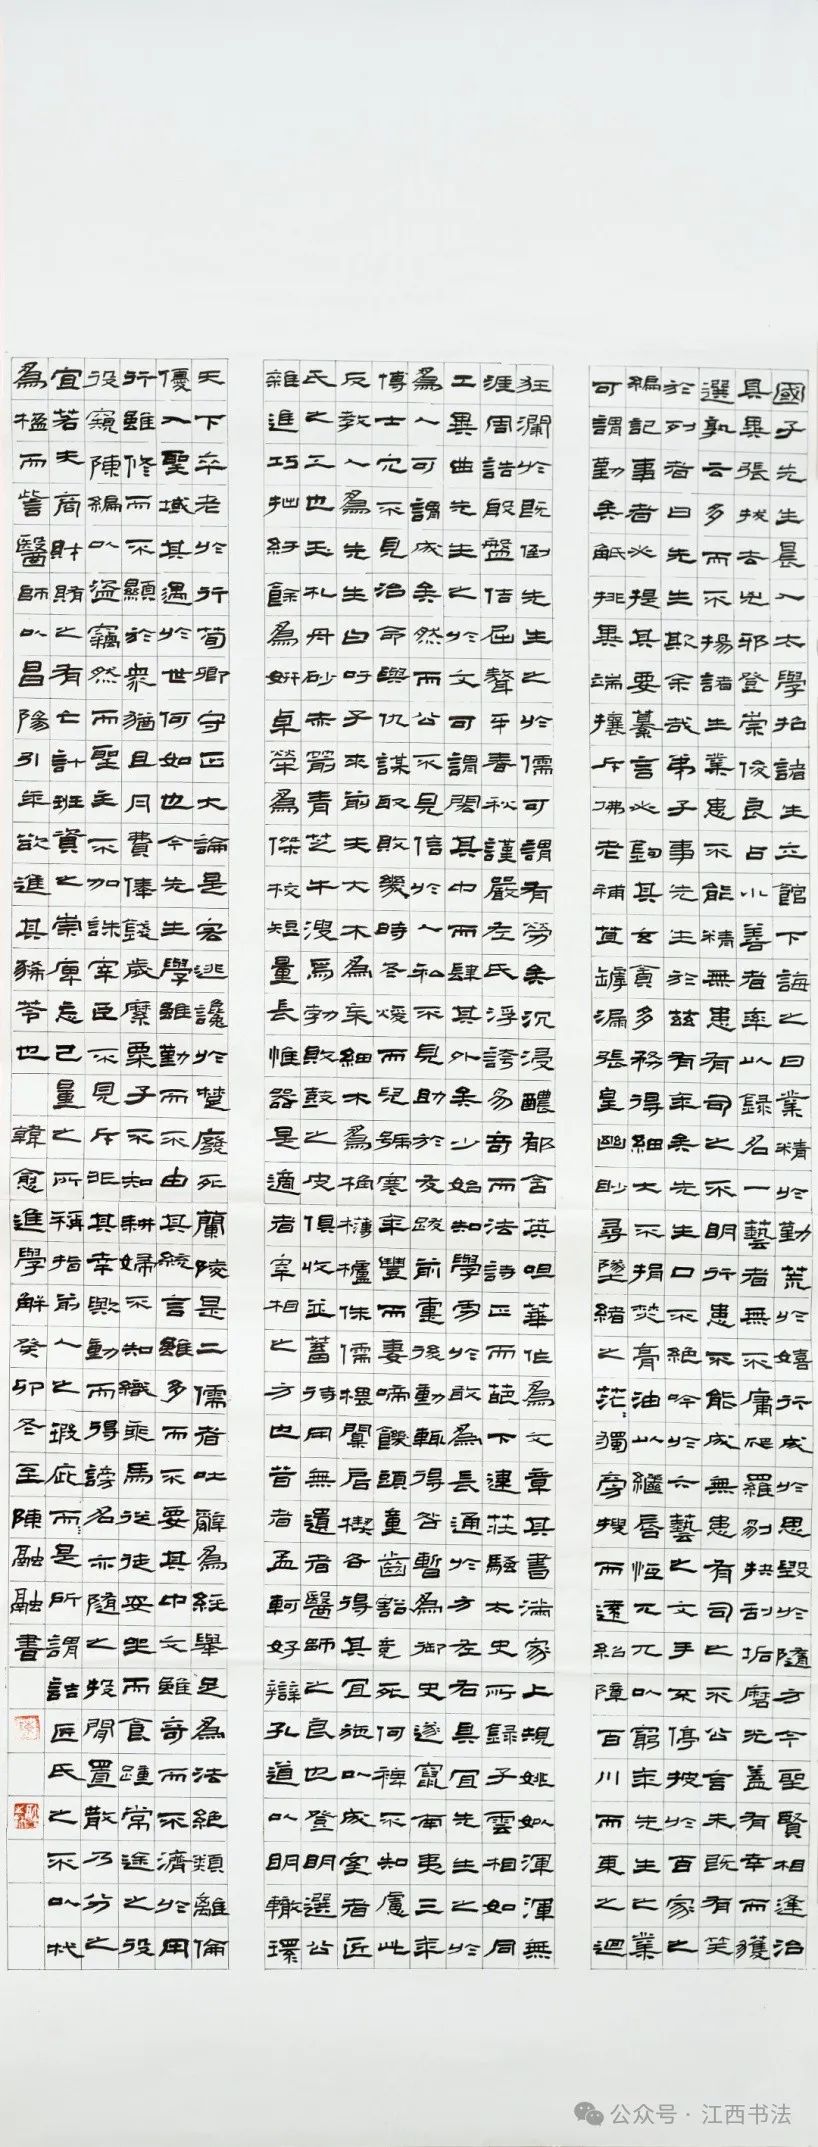 國子先生晨入太學招諸生立館下誨之曰業精於勤荒於嬉行成於思毀於隨方今聖賢相逢治
具畢張拔去兇邪登崇俊良占小善者率以錄名一藝者無不庸爬羅剔抉刮垢磨光蓋有幸而獲
選孰云多而不揚諸生業患不能精無患有司之不明行患不能成無患有司之不公言未既有笑
於列者曰先生欺余哉弟子事先生於茲有年矣先生口不絕吟於六藝之文手不停披於百家之
編記事者必提其要纂言必鉤其玄貪多務得細大不捐焚膏油以繼晷恆兀兀以窮年先生之業
可謂勤矣觝排異端攘斥佛老補苴罅漏張皇幽眇尋墜緒之茫〻獨旁搜而遠紹障百川而東之迴
狂瀾於既倒先生之於儒可謂有勞矣沉浸醲郁含英咀華作為文章其書滿家上規姚姒渾渾無
涯周誥殷盤佶屈聱牙春秋謹嚴左氏浮誇易奇而法詩正而葩下逮莊騷太史所錄子雲相如同
工異曲先生之於文可謂閎其中而肆其外矣少始知學勇於敢為長通於方左右具宜先生之於
為人可謂成矣然而公不見信於人私不見助於友跋前疐後動輒得咎暫為御史遂竄南夷三年
博士冗不見治命與仇謀取敗幾時冬煖而兒號寒年豐而妻啼飢頭童齒豁竟死何裨不知慮此
反教人為先生曰吁子來前夫大木為杗細木為桷欂櫨侏儒椳闑扂楔各得其宜施以成室者匠
氏之工也玉札丹砂赤箭青芝牛溲馬勃敗鼓之皮俱收並蓄待用無遺者醫師之良也登明選公
雜進巧拙紆餘為妍卓犖為傑校短量長惟器是適者宰相之方也昔者孟軻好辯孔道以明轍環
天下卒老於行荀卿守正大論是宏逃讒於楚廢死蘭陵是二儒者吐辭為經舉足為法絕類離倫
優入聖域其遇於世何如也今先生學雖勤而不由其統言雖多而不要其中文雖奇而不濟於用
行雖修而不顯於眾猶且月費俸錢歲糜粟子不知耕婦不知織乘馬從徒安坐而食踵常途之役
役窺陳編以盜竊然而聖主不加誅宰臣不見斥非其幸歟動而得謗名亦隨之投閒置散乃分之
宜若夫商財賄之有亡計班資之崇庳忘己量之所稱指前人之瑕疵而〻是所謂詰匠氏之不以杙
為楹而訾醫師以昌陽引年欲進其豨苓也 韓愈進學解癸卯冬至陳融融書
公众号·江西书法